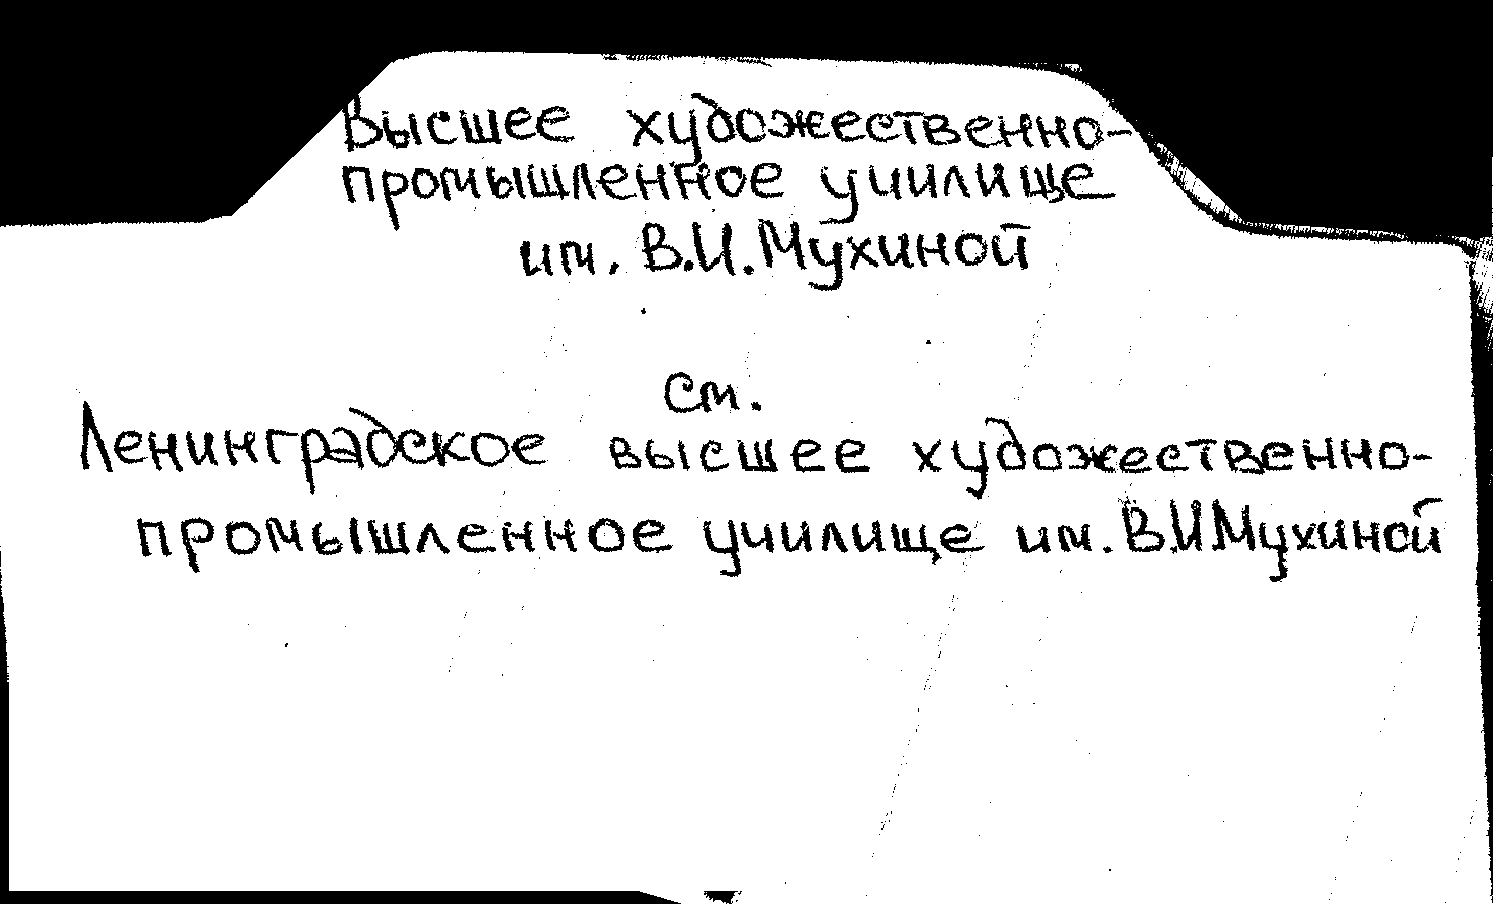 Высшее художественно-
промышленное училище
им. В.И.Мухиной
см.
Ленинградское высшее художественно-
промышленное училище им. В.И.Мухиной